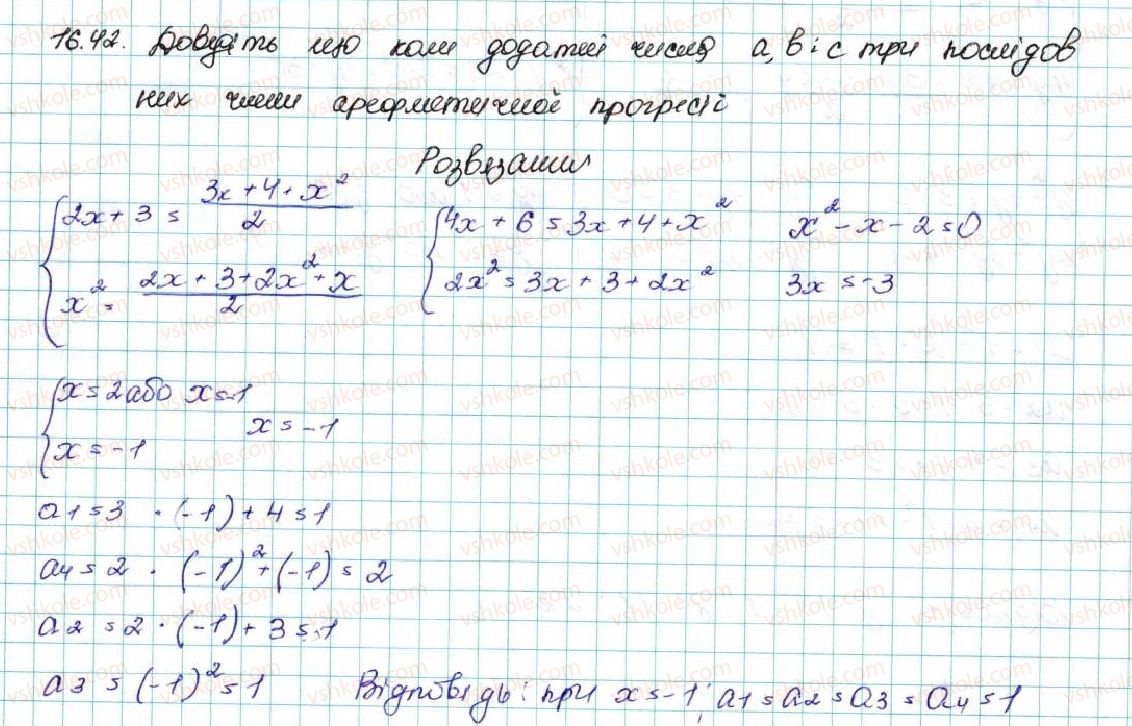 16.42. Доведіть що коли додатні числа a, b і c три послідов
них члени арефметичної прогресії
Розвязання
2x + 3 = (3x + 4 + x²)/2    4x + 6 = 3x + 4 + x²    x² - x - 2 = 0
x² = (2x + 3 + 2x² + x)/2    2x² = 3x + 3 + 2x²    3x = -3
x = 2 або x = -1
x = -1    x = -1
a1 = 3 · (-1) + 4 = 1
a4 = 2 · (-1)² + (-1) = 2
a2 = 2 · (-1) + 3 = 1
a3 = (-1)² = 1    Відповідь: при x = -1; a1 = a2 = a3 = a4 = 1